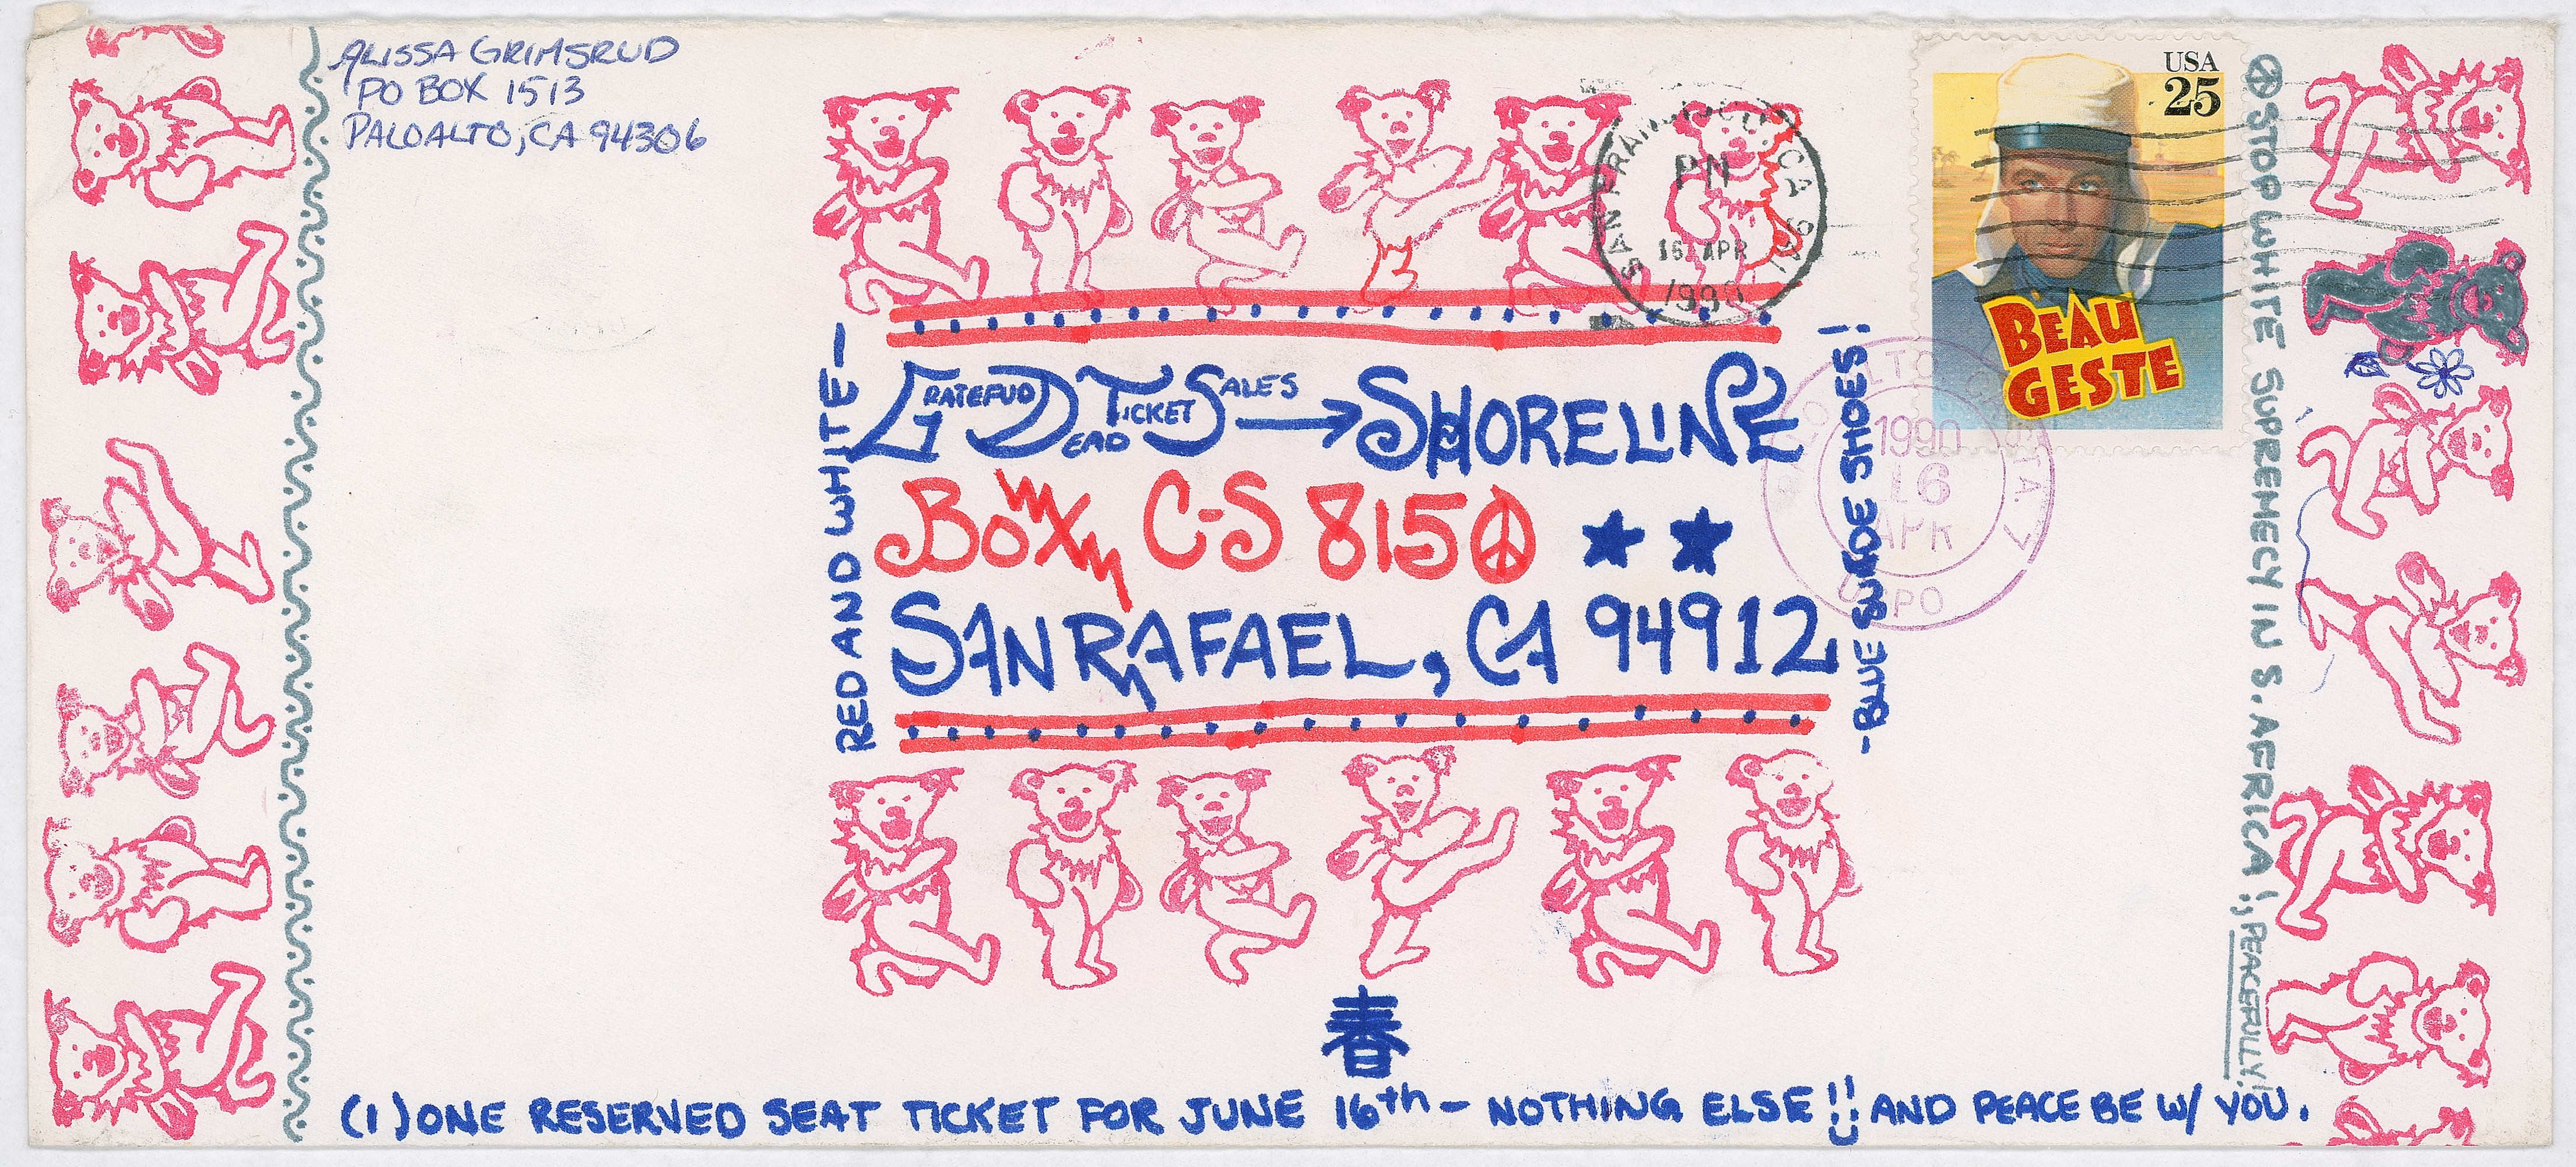 ALISSA GRIMSRUD
PO BOX 1513
PALOALTO, CA 94306
SAN FRANCISCO CA
PM
16 APR
1990
USA
25
BEAU
GESTE
1990
16
APR
RED AND WHITE—
GRATEFUD DEAD TICKET SALES → SHORELINE
BOX C-S 8150
SAN RAFAEL, CA 94912
-BLUE SUEDE SHOES!
☮ STOP WHITE SUPREMECY IN S. AFRICA!; PEACEFULLY!
春
(1) ONE RESERVED SEAT TICKET FOR JUNE 16th - NOTHING ELSE!! AND PEACE BE W/ YOU.